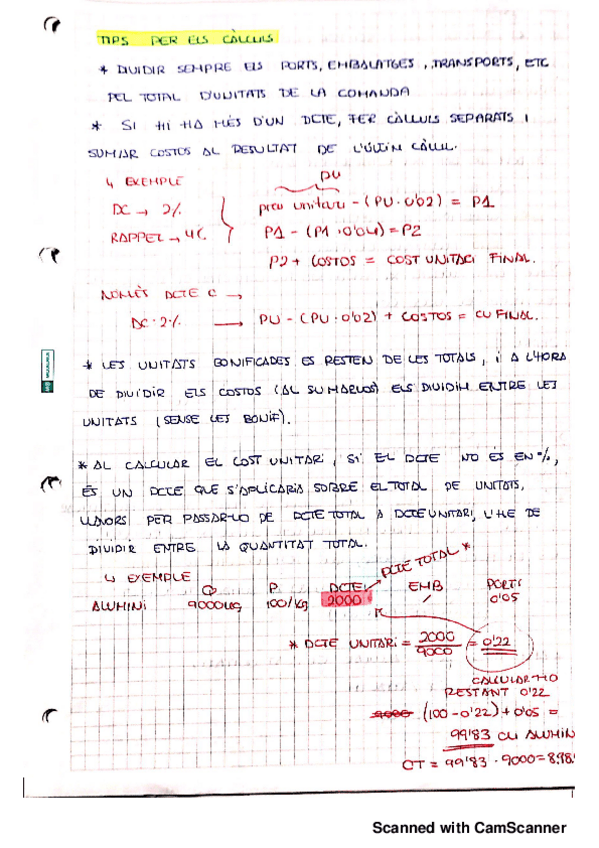 TIPS PER ELS CÀLCULS
* DIVIDIR SEMPRE ELS PORTS, EMBALATGES, TRANSPORTS, ETC
PEL TOTAL D'UNITATS DE LA COMANDA
* SI HI HA MÉS D'UN DCTE, FER CÀLCULS SEPARATS I
SUMAR COSTOS AL RESULTAT DE L'ÚLTIM CÀLCUL.
↳ EXEMPLE
PU
DC → 2%
preu unitari - (PU · 0'02) = P1
RAPPEL → 4%
P1 - (P1 · 0'04) = P2
P2 + COSTOS = COST UNITARI FINAL.
NOMÉS DCTE C →
DC · 2% → PU - (PU · 0'02) + COSTOS = CU FINAL.
* LES UNITATS BONIFICADES ES RESTEN DE LES TOTALS, i A L'HORA
DE DIVIDIR ELS COSTOS (AL SUMARLOS) ELS DIVIDIM ENTRE LES
UNITATS (SENSE LES BONIF).
* AL CALCULAR EL COST UNITARI, SI EL DCTE NO ÉS EN %,
ÉS UN DCTE QUE S'APLICARIA SOBRE EL TOTAL DE UNITATS,
LLAVORS PER PASSAR-LO DE DCTE TOTAL A DCTE UNITARI, L'HE DE
DIVIDIR ENTRE LA QUANTITAT TOTAL.
↳ EXEMPLE
DCTE TOTAL *
Q P DCTE EMB PORTS
ALUMINI 9000KG 100/KG 2000 / 0'05
* DCTE UNITARI = 2000/9000 = 0'22
CALCULAR-HO
RESTANT 0'22
9000 · (100 - 0'22) + 0'05 =
99'83 CU ALUMIN
CT = 99'83 · 9000 = 898.
Scanned with CamScanner